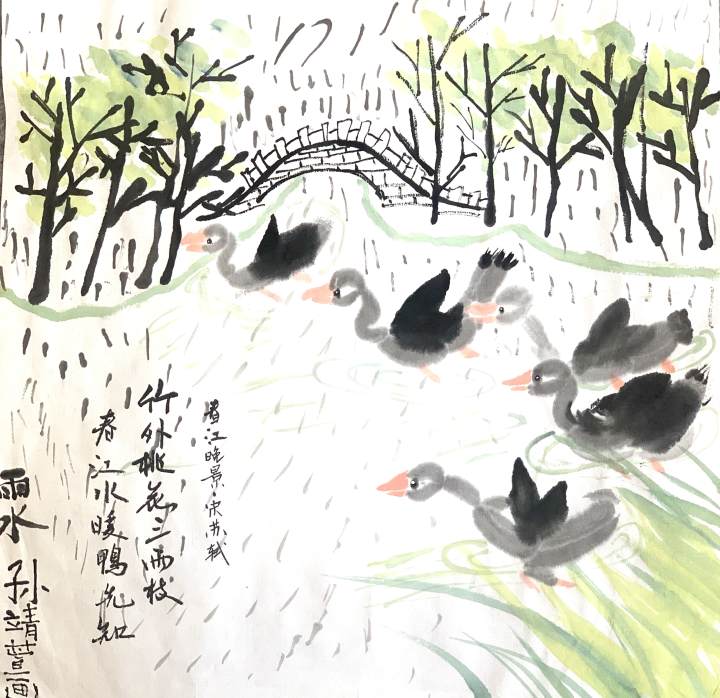 春江晚景·宋苏轼
竹外桃花三两枝
春江水暖鸭先知
雨水 孙靖萱画